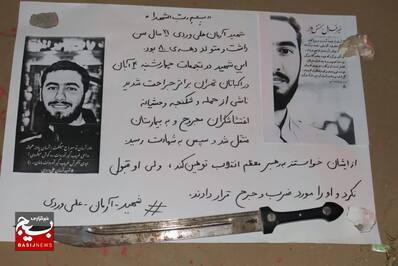 بسم رب الشهداء
شهید آرمان علی وردی ۲۱ سال سن
داشت و متولد دهه‌ی ۸۰ بود
این شهید در تجمعات چهارشنبه ۴ آبان
در اکباتان تهران براثر جراحت شدید
ناشی از حمله و شکنجه وحشیانه
اغتشاشگران مجروح و به بیمارستان
منتقل شد و سپس به شهادت رسید.
از ایشان خواستند به رهبر معظم انقلاب توهین کند، ولی او قبول
نکرد و او را مورد ضرب و جرح قرار دادند.
# شهید-آرمان-علی وردی
خبرگزاری
بسیج
BASIJNEWS